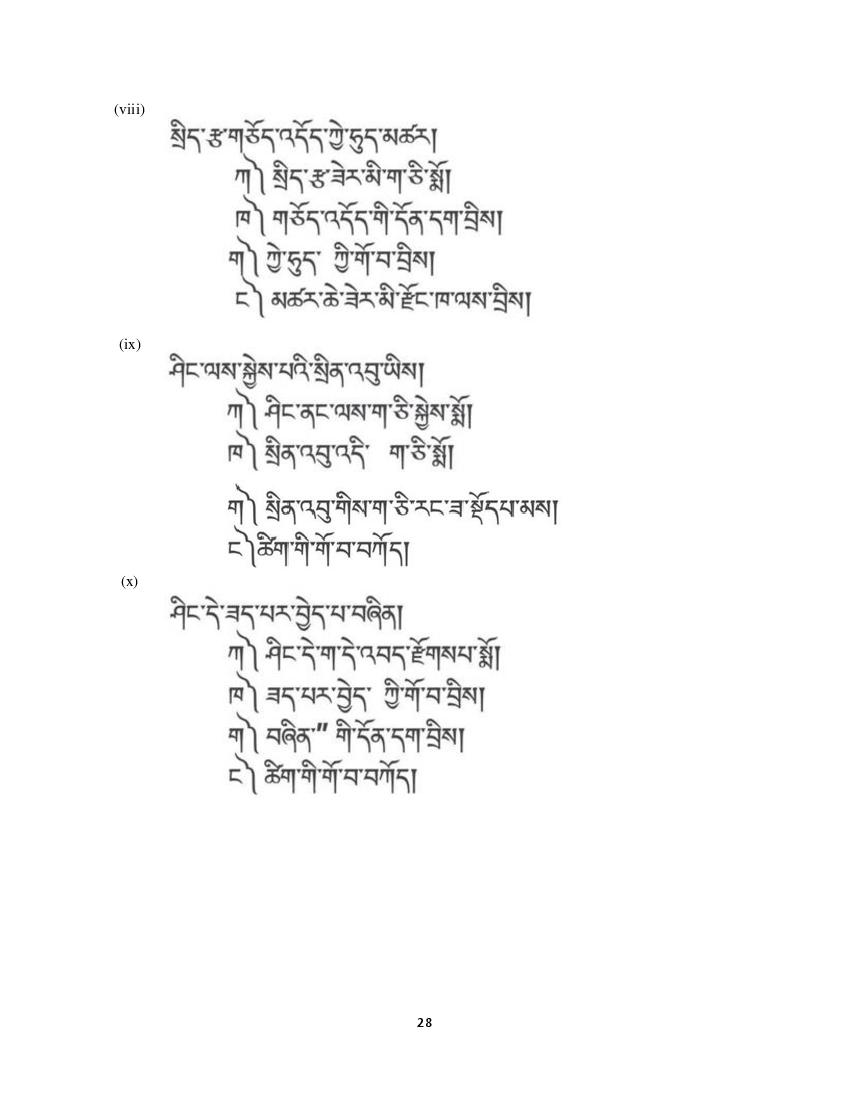 (viii)
སྲིད་རྩ་གཅོད་འདོད་ཀྱེ་ཧུད་མཚར།
ཀ༽ སྲིད་རྩ་ཟེར་མི་ག་ཅི་སྨོ།
ཁ༽ གཅོད་འདོད་གི་དོན་དག་བྲིས།
ག༽ ཀྱེ་ཧུད་ ཀྱི་གོ་བ་བྲིས།
ང༽ མཚར་ཆེ་ཟེར་མི་རྫོང་ཁ་ལས་བྲིས།
(ix)
ཤིང་ལས་སྐྱེས་པའི་སྲིན་འབུ་ཡིས།
ཀ༽ ཤིང་ནང་ལས་ག་ཅི་སྐྱེས་སྨོ།
ཁ༽ སྲིན་འབུ་འདི་ ག་ཅི་སྨོ།
ག༽ སྲིན་འབུ་གིས་ག་ཅི་རང་ཟ་སྡོདཔ་མས།
ང༽ཚིག་གི་གོ་བ་བཀོད།
(x)
ཤིང་དེ་ཟད་པར་བྱེད་པ་བཞིན།
ཀ༽ ཤིང་དེ་ག་དེ་འབད་རྫོགསཔ་སྨོ།
ཁ༽ ཟད་པར་བྱེད་ ཀྱི་གོ་བ་བྲིས།
ག༽ བཞིན་" གི་དོན་དག་བྲིས།
ང༽ ཚིག་གི་གོ་བ་བཀོད།
28